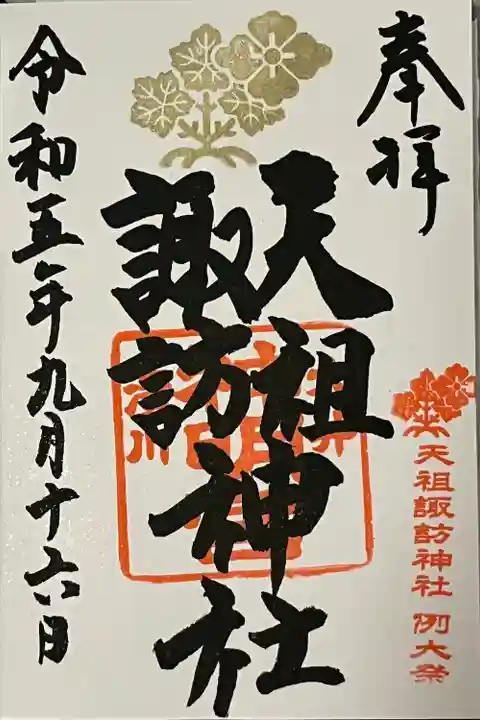 奉拝
天祖
諏訪
神社
天祖諏訪神社 例大祭
令和五年九月十六日